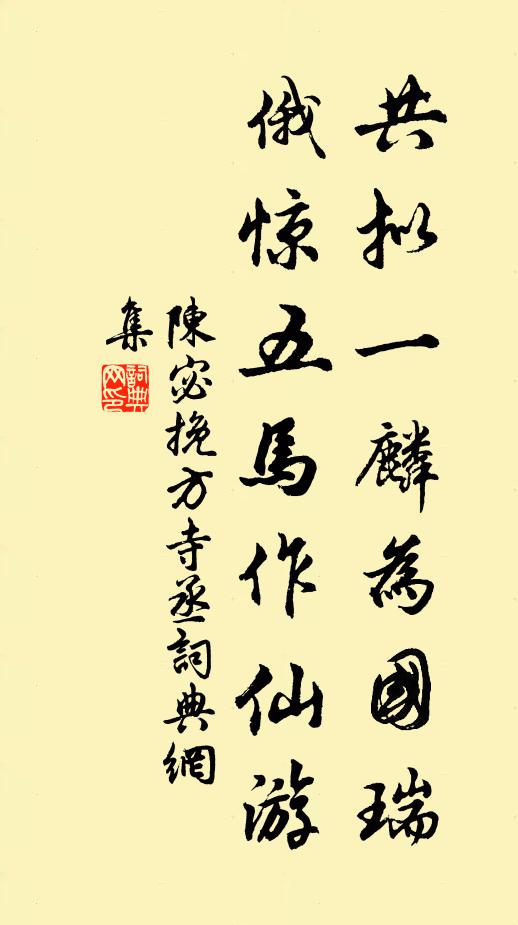 共拟一麟為國瑞
俄惊五馬作仙游
陳宓挽方寺丞詞典網
集
詞典
网印